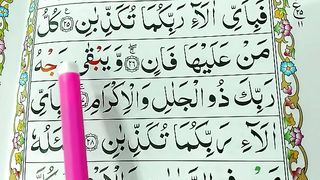 فَبِاَيِّ اٰلَآءِ رَبِّكُمَا تُكَذِّبٰنِ ﴿۲۵﴾ كُلُّ
مَنْ عَلَيْهَا فَانٍ ﴿۲۶﴾ وَّيَبْقٰى وَجْهُ
رَبِّكَ ذُو الْجَلٰلِ وَالْاِكْرَامِ ﴿۲۷﴾ فَبِاَيِّ
اٰلَآءِ رَبِّكُمَا تُكَذِّبٰنِ ﴿۲۸﴾